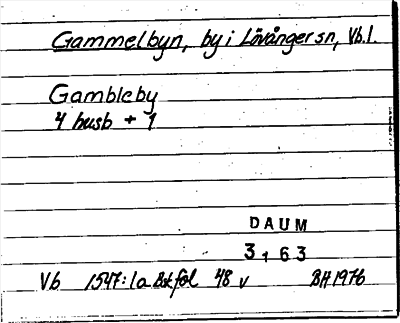 Gammelbyn, by i Lövånger sn, Vb.l.
Gambleby
4 husb + 1
DAUM
3163
Vb 1547:1a Bskfol 48 v BH1976